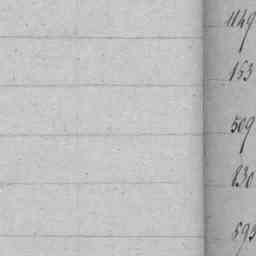 1149
153
509
830
593